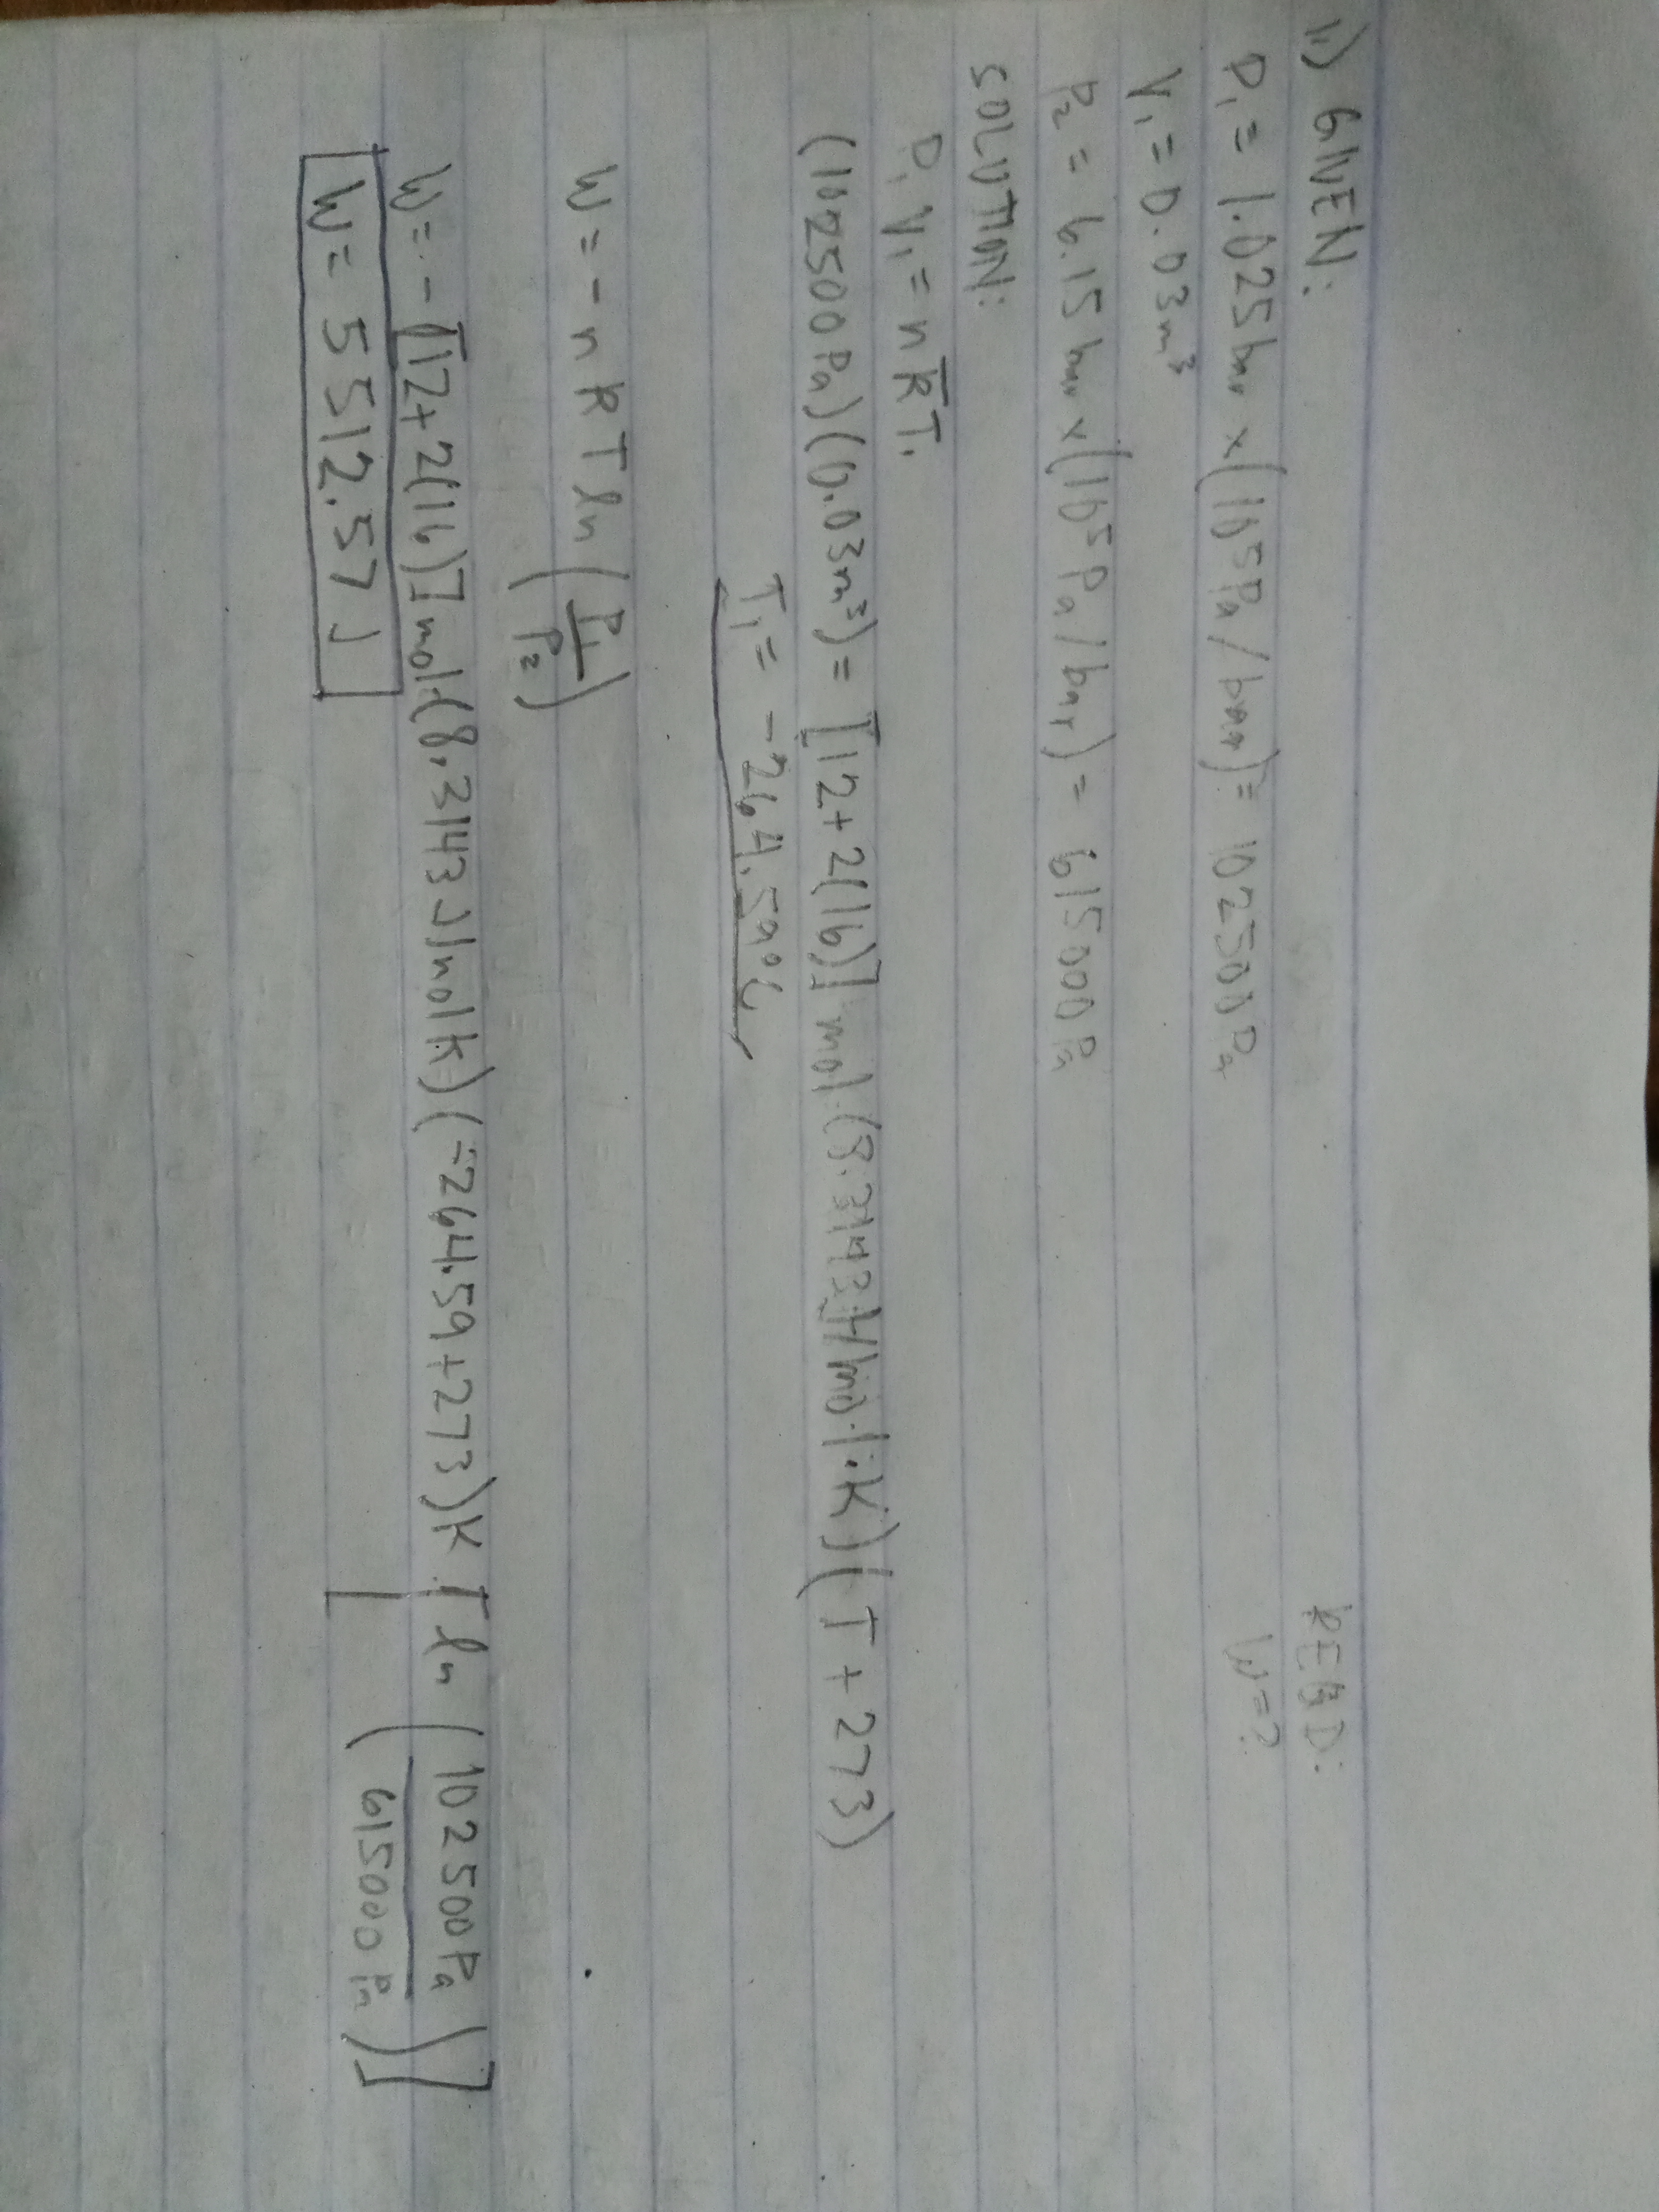 1.) GIVEN: REQD:
P₁ = 1.025 bar x (10⁵ Pa / bar) = 102500 Pa W = ?
V₁ = 0.03 m³
P₂ = 6.15 bar x (10⁵ Pa / bar) = 615000 Pa
SOLUTION:
P₁ V₁ = n R̅ T₁
(102500 Pa) (0.03 m³) = [12 + 2(16)] mol (8.3143 J/mol·K) (T + 273)
T₁ = -264.59°C
W = - n R T ln (P₁/P₂)
W = - [12 + 2(16)] mol (8.3143 J/mol K) (-264.59 + 273) K [ln (102500 Pa / 615000 Pa)]
W = 5512.57 J